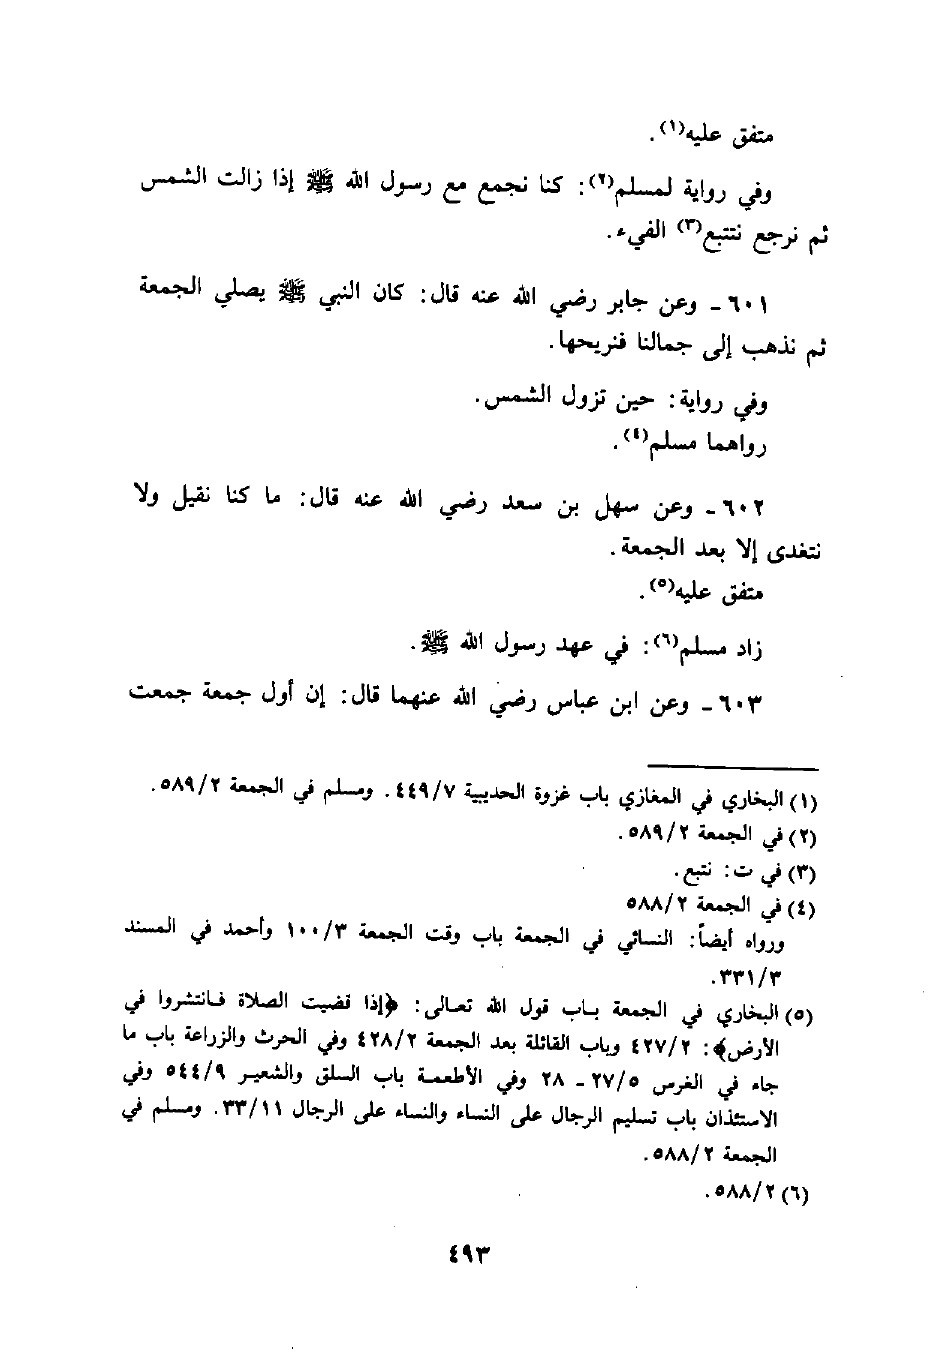 متفق عليه(١).
وفي رواية لمسلم(٢): كنا نجمع مع رسول الله ﷺ إذا زالت الشمس
ثم نرجع نتتبع(٣) الفيء.
٦٠١ - وعن جابر رضي الله عنه قال: كان النبي ﷺ يصلي الجمعة
ثم نذهب إلى جمالنا فنريحها.
وفي رواية: حين تزول الشمس.
رواهما مسلم(٤).
٦٠٢ - وعن سهل بن سعد رضي الله عنه قال: ما كنا نقيل ولا
نتغدى إلا بعد الجمعة.
متفق عليه(٥).
زاد مسلم(٦): في عهد رسول الله ﷺ.
٦٠٣ - وعن ابن عباس رضي الله عنهما قال: إن أول جمعة جمعت
(١) البخاري في المغازي باب غزوة الحديبية ٤٤٩/٧. ومسلم في الجمعة ٥٨٩/٢.
(٢) في الجمعة ٥٨٩/٢.
(٣) في ت: نتبع.
(٤) في الجمعة ٥٨٨/٢
ورواه أيضاً: النسائي في الجمعة باب وقت الجمعة ١٠٠/٣ وأحمد في المسند
٣٣١/٣.
(٥) البخاري في الجمعة باب قول الله تعالى: ﴿إذا قضيت الصلاة فانتشروا في
الأرض﴾: ٤٢٧/٢ وباب القائلة بعد الجمعة ٤٢٨/٢ وفي الحرث والزراعة باب ما
جاء في الغرس ٢٧/٥ - ٢٨ وفي الأطعمة باب السلق والشعير ٥٤٤/٩ وفي
الاستئذان باب تسليم الرجال على النساء والنساء على الرجال ٣٣/١١. ومسلم في
الجمعة ٥٨٨/٢.
(٦) ٥٨٨/٢.
٤٩٣